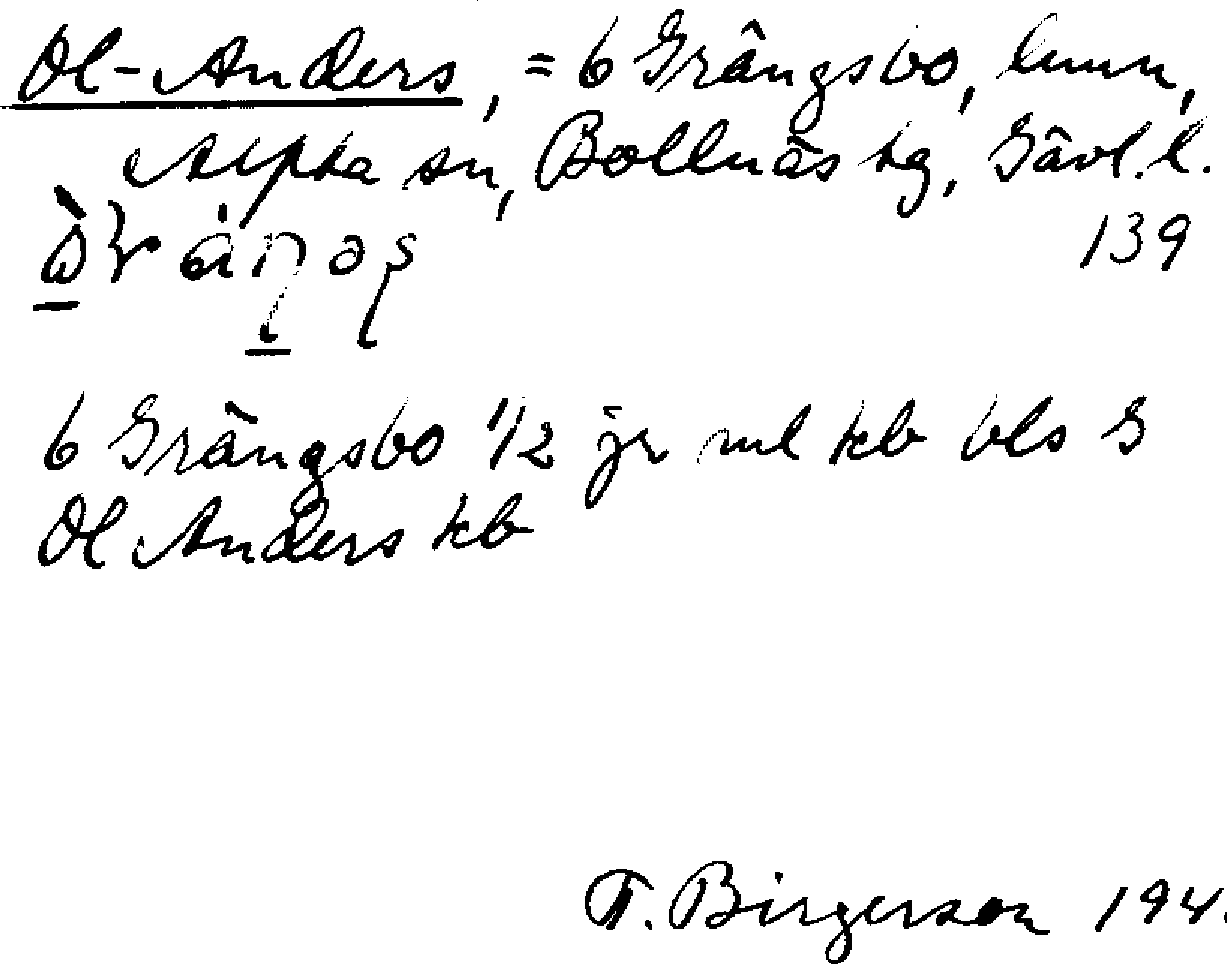 Ol-Anders, = 6 Grängsbo, hmn,
Alfta sn, Bollnäs tg, Gävl. l.
139
6 Grängsbo 1/2 jr ml kb bls G
Ol Anders kb
T. Birgerson 194.